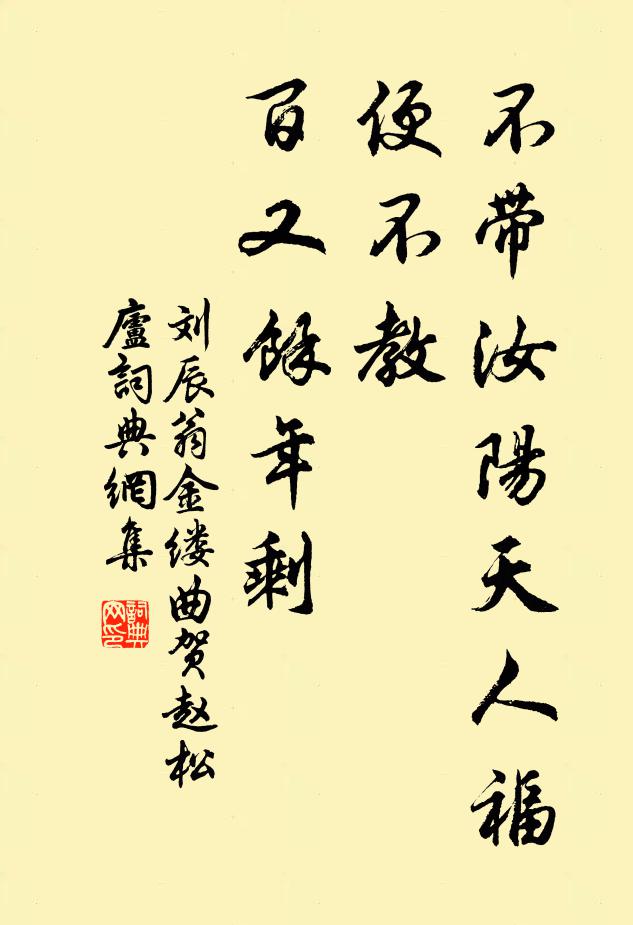 不带汝陽天人福
便不教
百又餘年剩
刘辰翁金缕曲贺赵松
廬詞典網集
詞典
网印